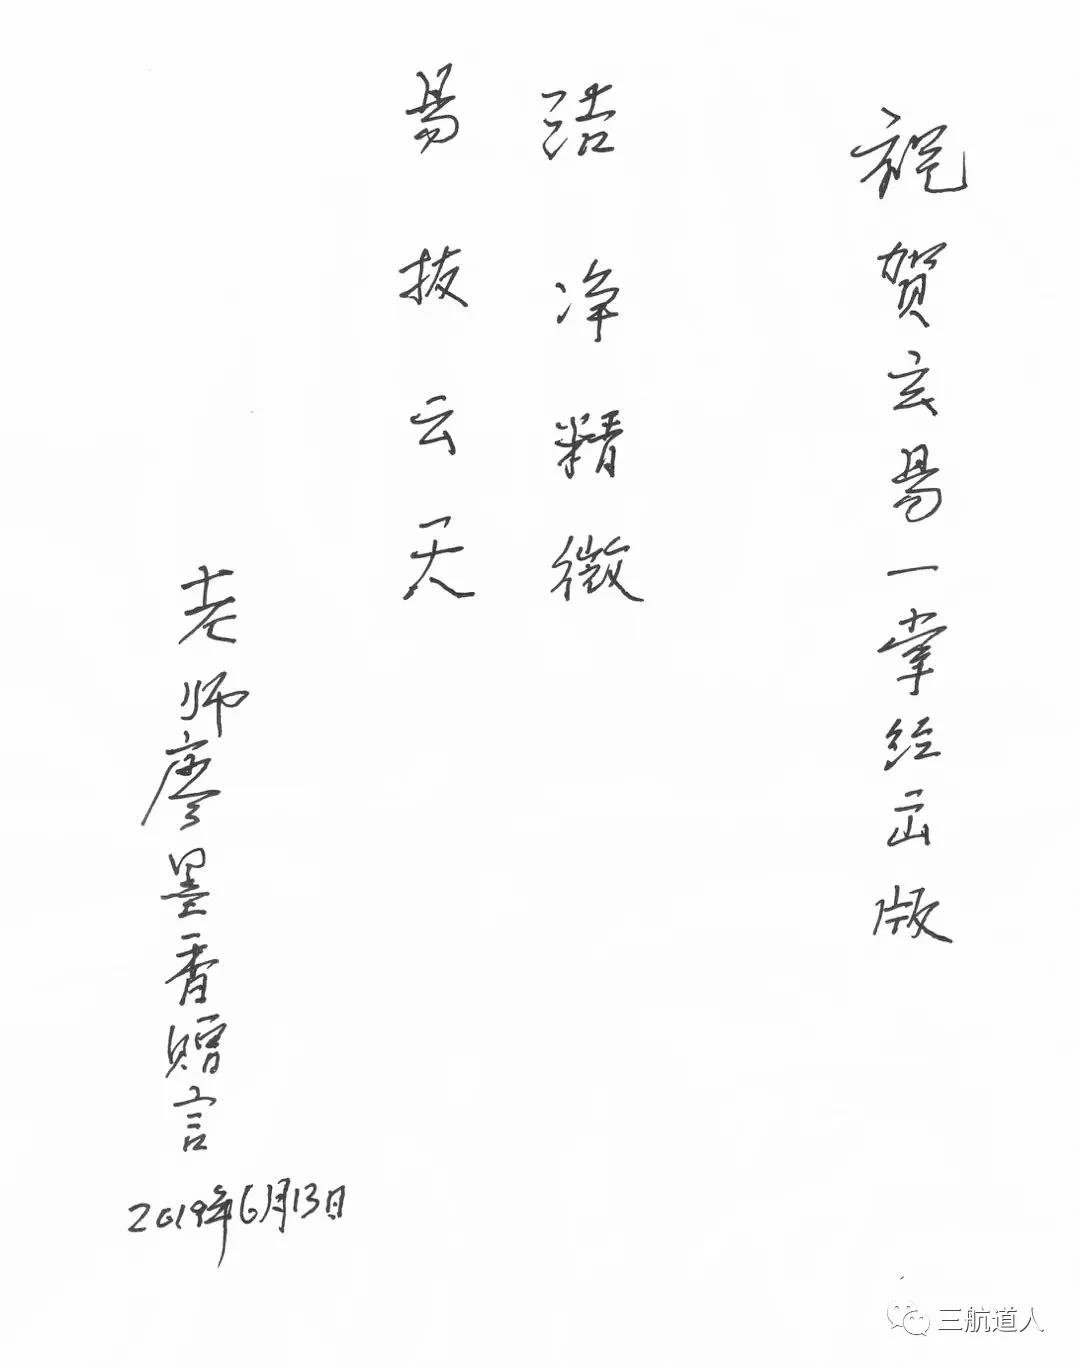 祝贺玄易一掌经出版
洁净精微
易拔云天
老师廖墨香赠言
2019年6月13日
三航道人